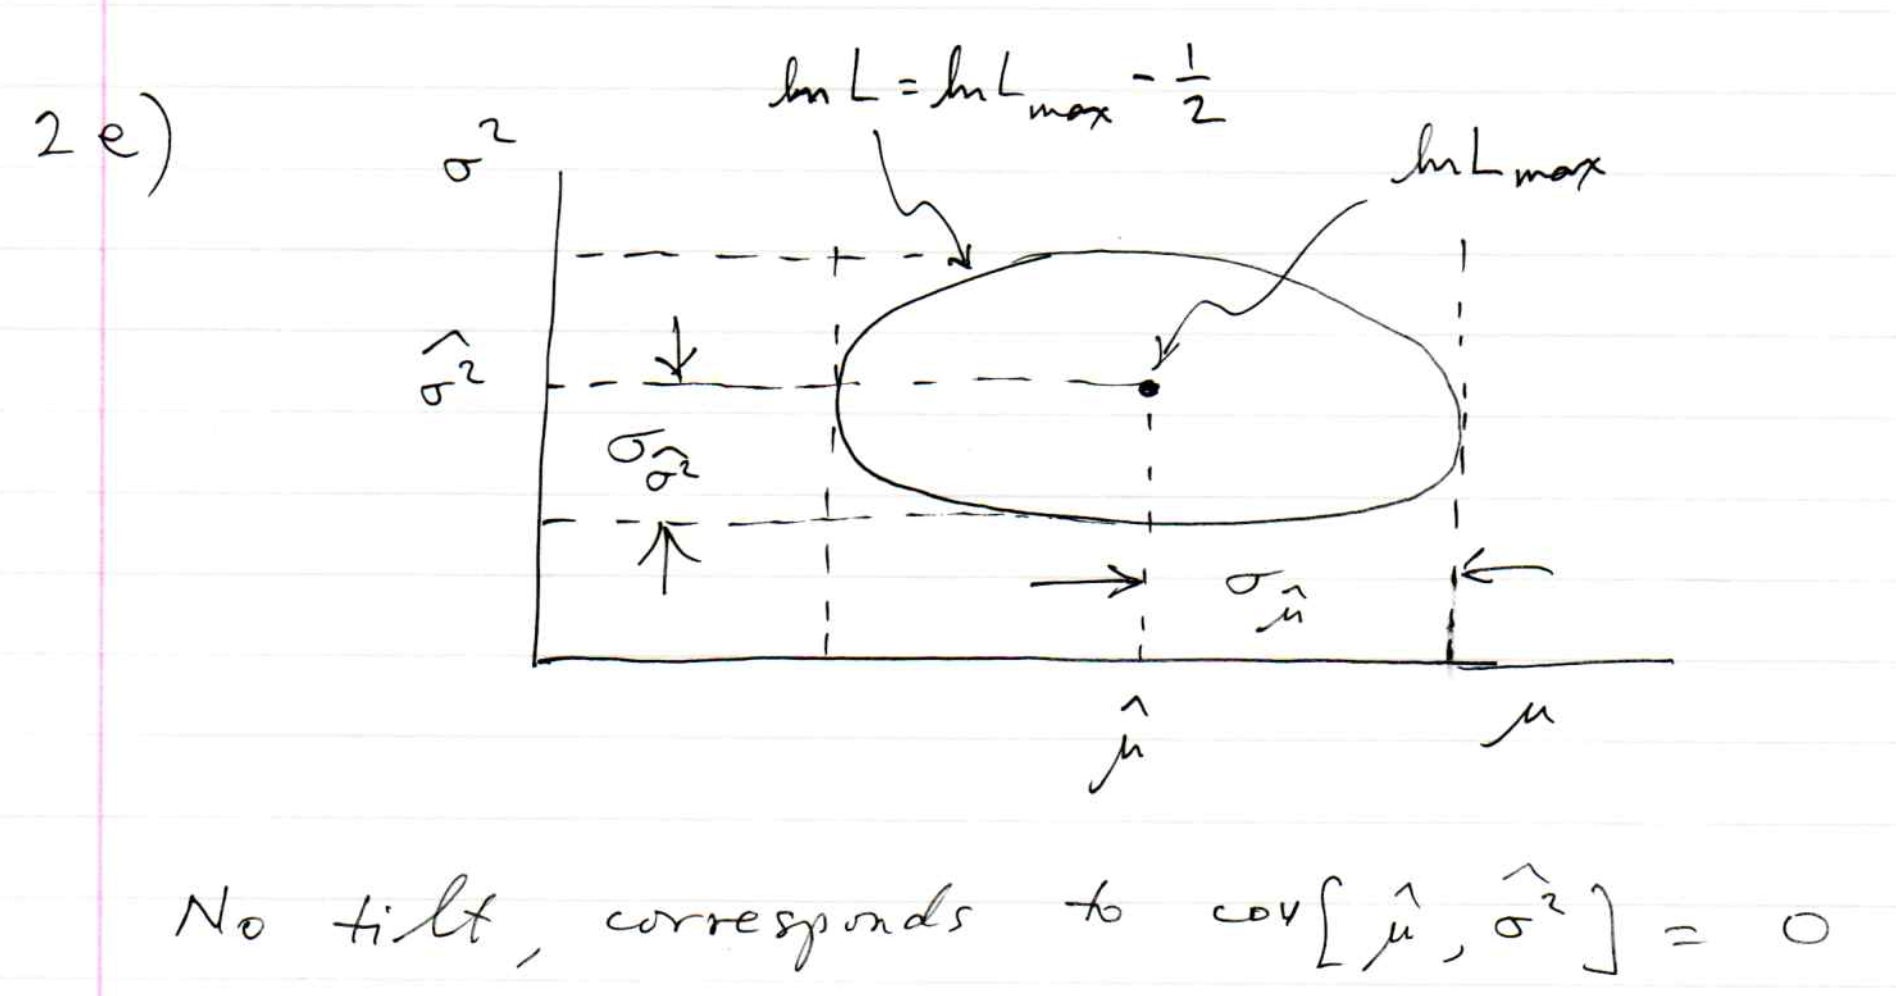 ln L = ln L_max - 1/2
2e)
σ²
ln L_max
σ̂²
σ_σ̂²
σ_μ̂
μ̂
μ
No tilt, corresponds to cov[μ̂, σ̂²] = 0